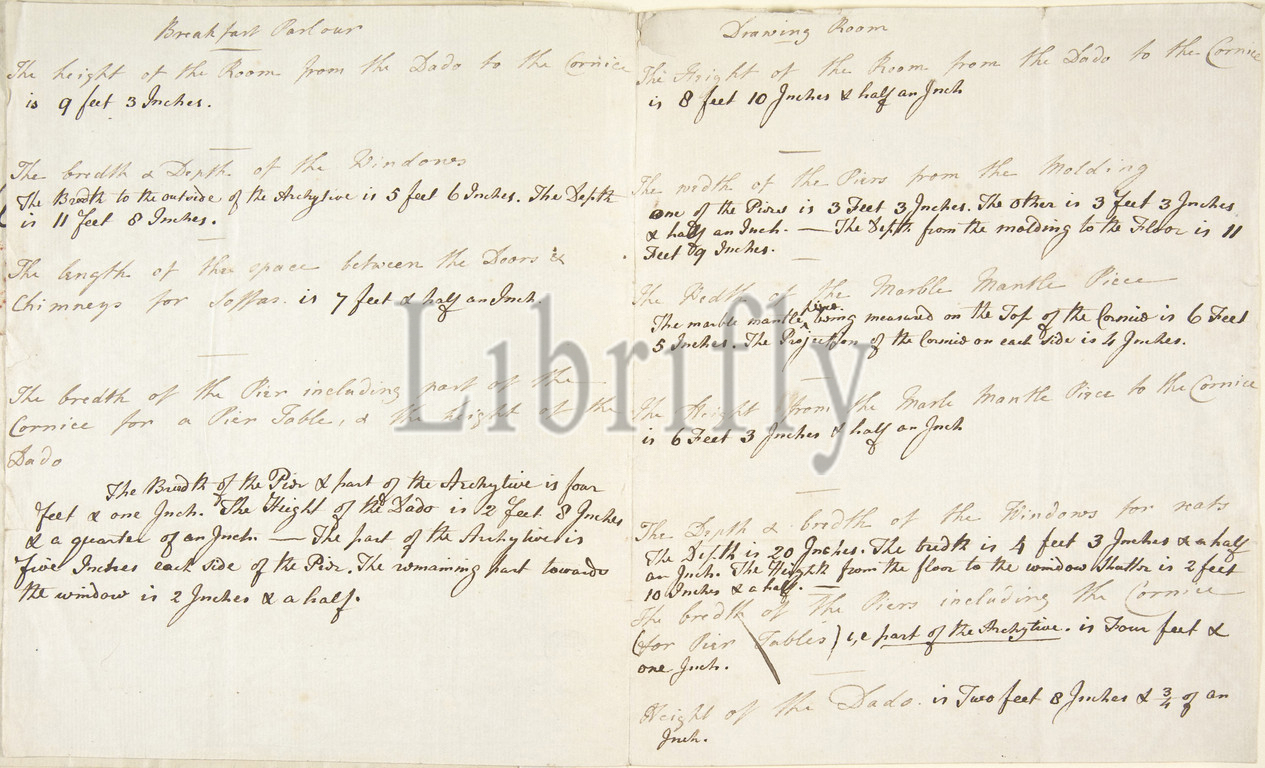 Breakfast Parlour
The height of the Room from the Dado to the Cornice
is 9 feet 3 Inches.
The bredth & Depth of the Windows
The Bredth to the outside of the Archytive is 5 feet 6 Inches. The Depth
is 11 Feet 8 Inches.
The length of the space between the Doors &
Chimneys for Soffas. is 7 feet & half an Inch.
The breadth of the Pier including part of the
Cornice for a Pier Table, & the height of the
Dado
The Bredth of the Pier & part of the Archytive is four
feet & one Inch. The Height of the Dado is 2 feet 8 Inches
& a quarter of an Inch. — The part of the Archytive is
five Inches each side of the Pier. The remaining part towards
the window is 2 Inches & a half.
Drawing Room
The Height of the Room from the Dado to the Cornice
is 8 feet 10 Inches & half an Inch
The width of the Piers from the Molding
one of the Piers is 3 Feet 3 Inches. The other is 3 feet 3 Inches
& half an Inch. — The Depth from the molding to the Floor is 11
Feet 9 Inches.
The Wedth of the Marble Mantle Piece
The marble mantle piece being measured on the Top of the Cornice is 6 Feet
5 Inches. The Projection of the Cornice on each side is 4 Inches.
The Height from the Marle Mantle Piece to the Cornice
is 6 Feet 3 Inches & half an Inch
The Depth & bredth of the Windows for seats
The Depth is 20 Inches. The bredth is 4 feet 3 Inches & a half
an Inch. The Height from the floor to the window Shutter is 2 feet
10 Inches & a half.
The bredth of the Piers including the Cornice
(for Pier Tables) i,e part of the Archytive. is Four feet &
one Inch.
Height of the Dado. is Two feet 8 Inches & 3/4 of an
Inch.
Librifly